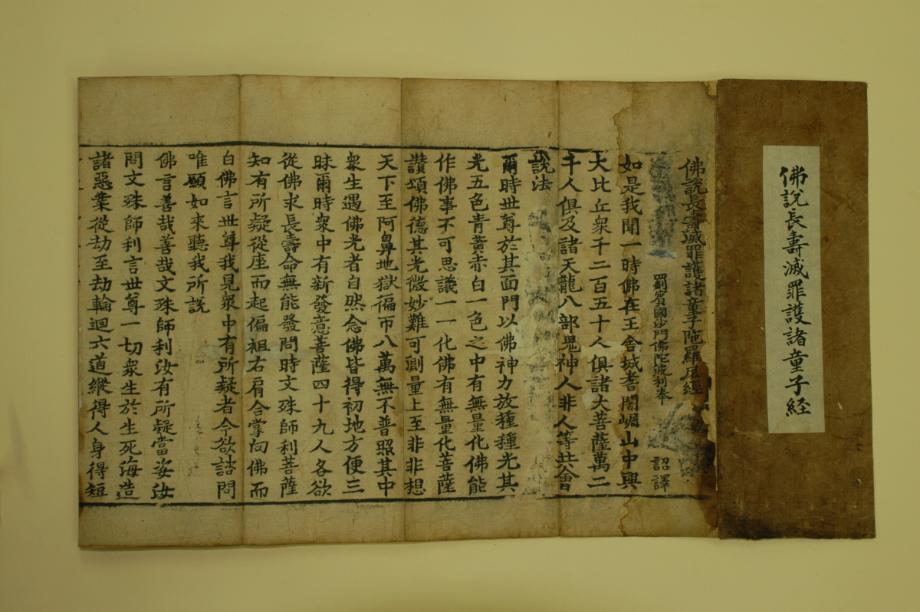 佛說長壽滅罪護諸童子経
佛說長壽滅罪護諸童子陁羅尼經
罽賓國沙門佛陁波利奉 詔譯
如是我聞一時佛在王舍城耆闍崛山中與
大比丘衆千二百五十人俱諸大菩薩萬二
千人俱及諸天龍八部鬼神人非人等共會
說法
爾時世尊於其面門以佛神力放種種光其
光五色青黃赤白一色之中有無量化佛能
作佛事不可思議一一化佛有無量化菩薩
讚頌佛德其光微妙難可測量上至非非想
天下至阿鼻地獄徧帀八萬無不普照其中
衆生遇佛光者自然念佛皆得初地方便三
昧爾時衆中有新發意菩薩四十九人各欲
從佛求長壽命無能發問時文殊師利菩薩
知有所疑從座而起偏袒右肩合掌向佛而
白佛言世尊我見衆中有所疑者今欲諮問
唯願如來聽我所說
佛言善哉善哉文殊師利汝有所疑當恣汝
問文殊師利言世尊一切衆生於生死海造
諸惡業從劫至劫輪迴六道縱得人身得短